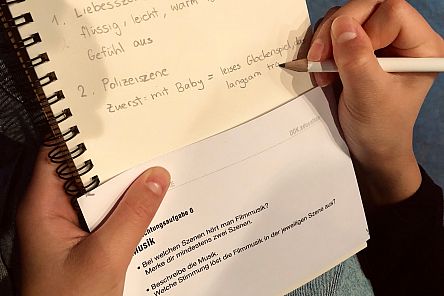 1. Liebesszene
flüssig, leicht, warm
Gefühl aus
2. Polizeiszene
Zuerst: mit Baby = leises Glockenspiel,
langsam
Musik
• Bei welchen Szenen hört man Filmmusik?
Merke dir mindestens zwei Szenen.
• Beschreibe die Musik.
Welche Stimmung löst die Filmmusik in der jeweiligen Szene aus?